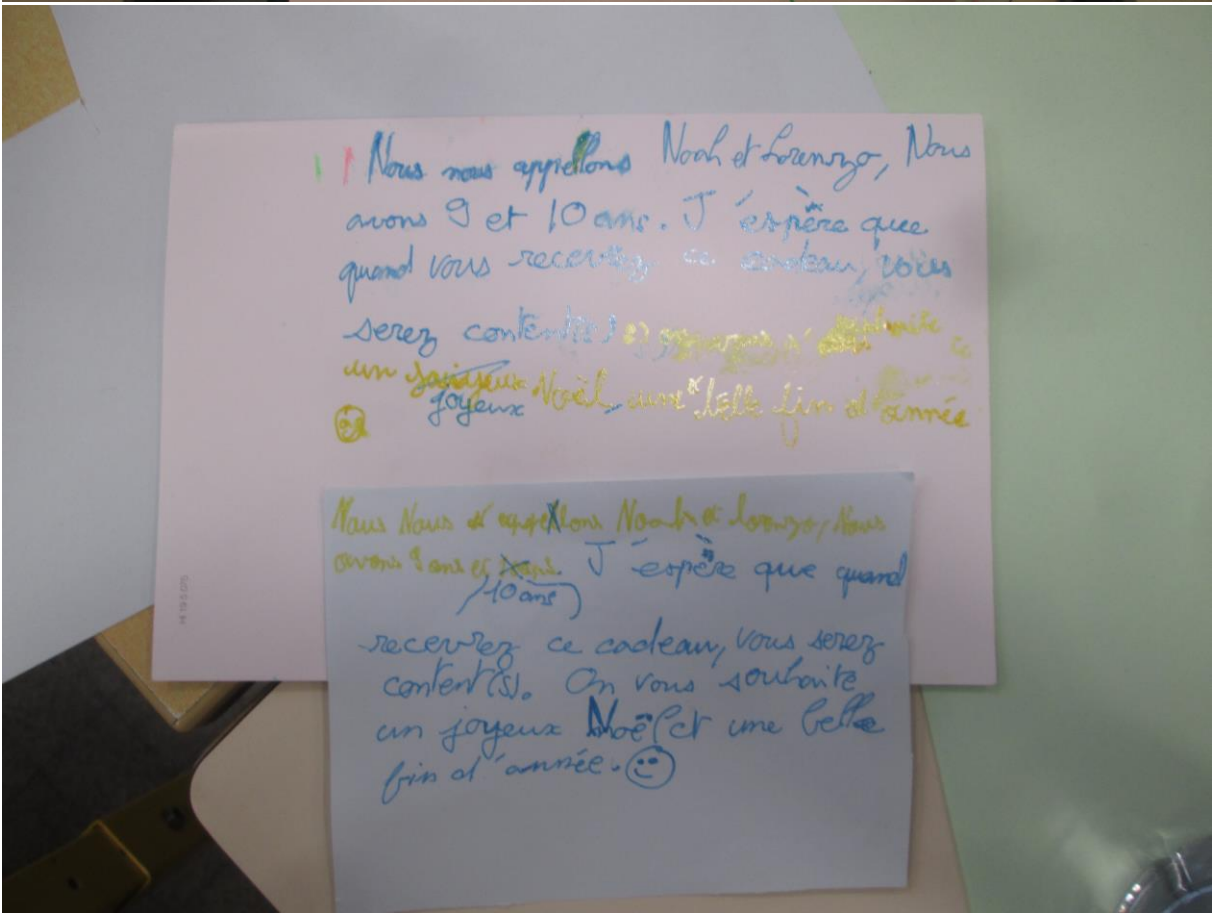 Nous nous appellons Noah et Lorenzo, Nous
avons 9 et 10 ans. J'espère que
quand vous recevrez ce cadeau, vous
serez content(e)
un joyeux Noël une belle fin d'année
Nous Nous appellons Noah et Lorenzo, Nous
avons 9 ans et J'espère que quand
(10 ans)
recevrez ce cadeau, vous serez
content(s). On vous souhaite
un joyeux Noël et une belle
fin d'année.